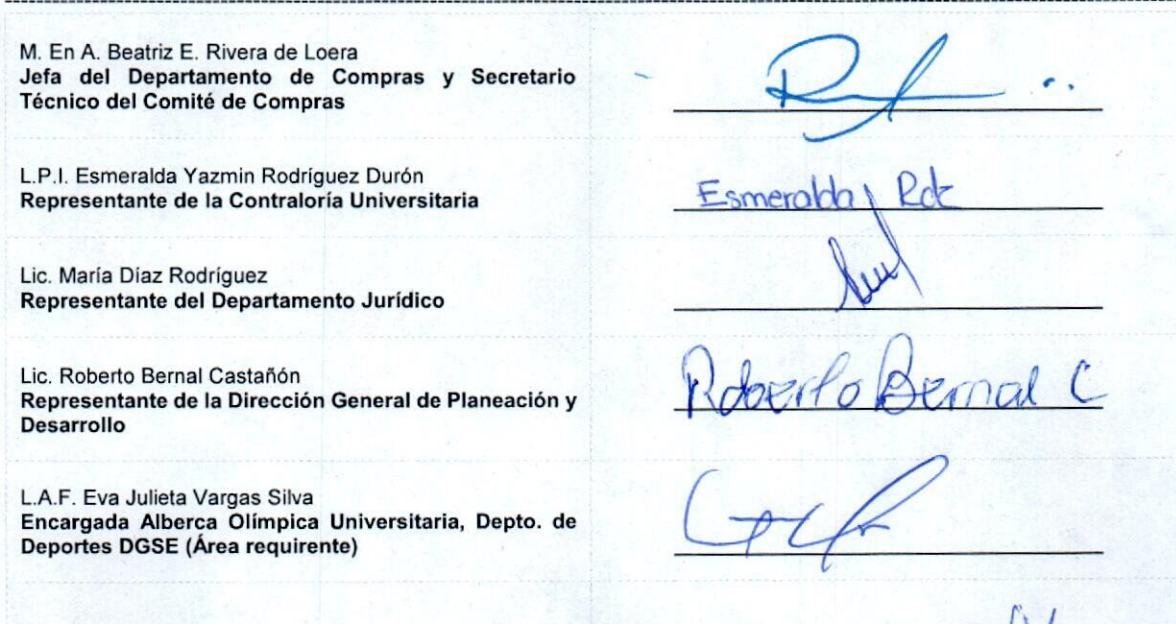 M. En A. Beatriz E. Rivera de Loera
Jefa del Departamento de Compras y Secretario
Técnico del Comité de Compras
L.P.I. Esmeralda Yazmin Rodríguez Durón
Representante de la Contraloría Universitaria
Esmeralda Rdz
Lic. María Díaz Rodríguez
Representante del Departamento Jurídico
Lic. Roberto Bernal Castañón
Representante de la Dirección General de Planeación y
Desarrollo
Roberto Bernal C
L.A.F. Eva Julieta Vargas Silva
Encargada Alberca Olímpica Universitaria, Depto. de
Deportes DGSE (Área requirente)